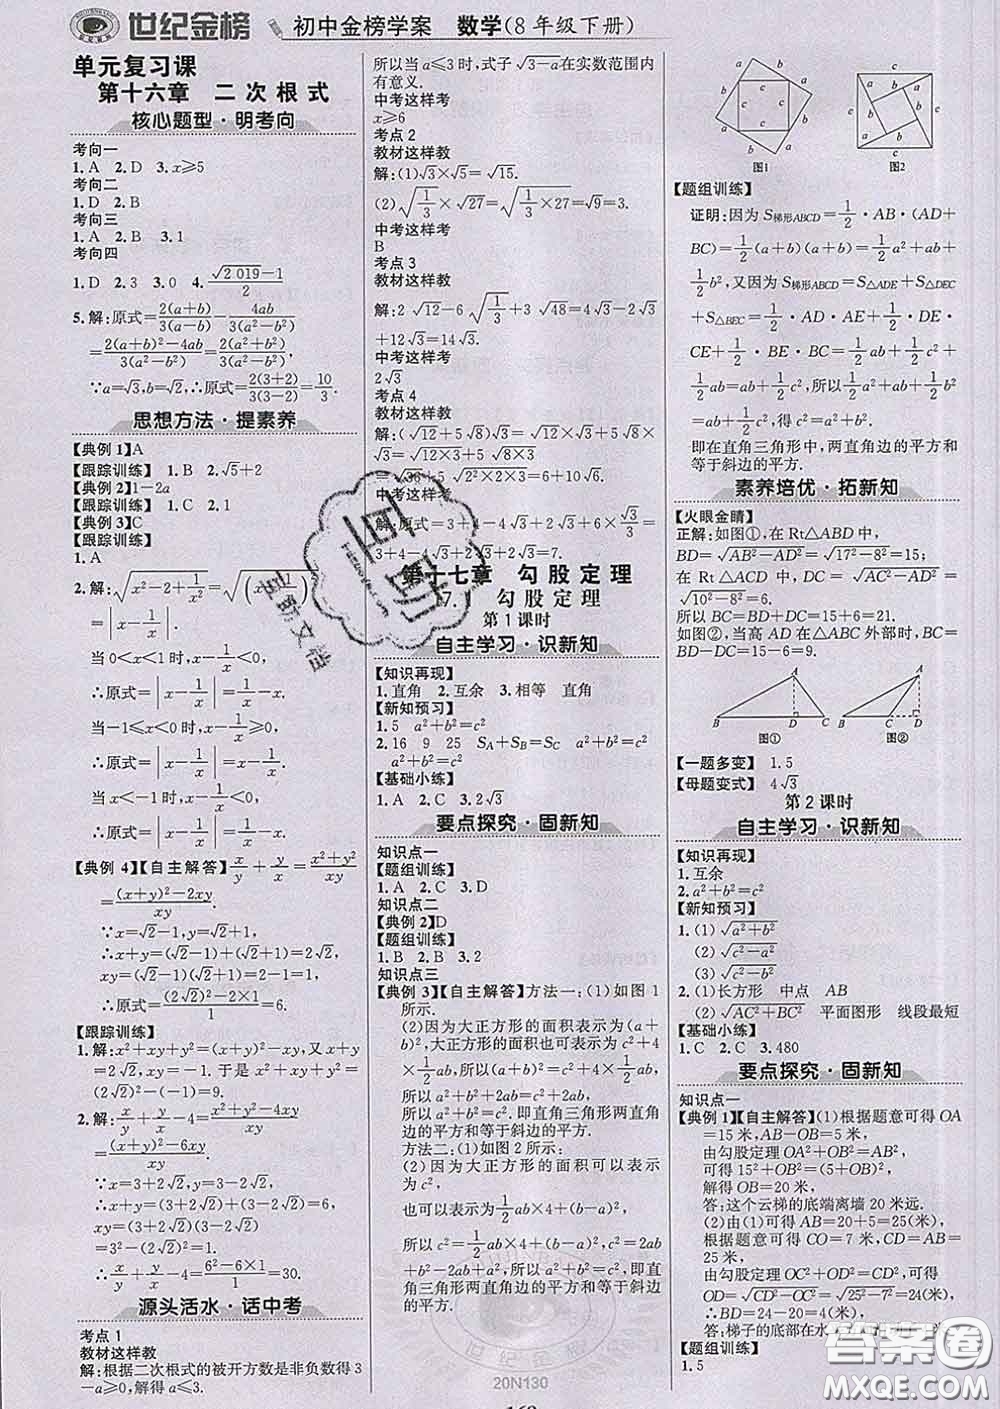 世纪金榜 初中金榜学案 数学(8年级下册)
单元复习课
第十六章 二次根式
核心题型·明考向
考向一
1. A 2. D 3. x≥5
考向二
1. D 2. B
考向三
1. A 2. B 3. 1
考向四
1. D 2. 3 3. 0 4. (√2 019-1)/2
5. 解:原式=2(a+b)/3(a-b)-4ab/3(a²-b²)
=[2(a+b)²-4ab]/3(a²-b²)=2(a²+b²)/3(a²-b²).
∵a=√3,b=√2,∴原式=2(3+2)/3(3-2)=10/3.
思想方法·提素养
【典例 1】A
【跟踪训练】 1. B 2. √5+2
【典例 2】1-2a
【跟踪训练】 1. C 2. 1
【典例 3】C
【跟踪训练】
1. A
2. 解:√(x²-2+1/x²)=√(x-1/x)²=
|x-1/x|.
当 0<x<1 时,x-1/x<0,
∴原式=|x-1/x|=1/x-x.
当-1≤x<0 时,x-1/x≥0,
∴原式=|x-1/x|=x-1/x.
当 x<-1 时,x-1/x<0,
∴原式=|x-1/x|=1/x-x.
【典例 4】【自主解答】x/y+y/x=(x²+y²)/xy
=[(x+y)²-2xy]/xy.
∵x=√2-1,y=√2+1,
∴x+y=(√2-1)+(√2+1)=2√2,
xy=(√2-1)(√2+1)=2-1=1,
∴原式=[(2√2)²-2×1]/1=6.
【跟踪训练】
1. 解:x²+xy+y²=(x+y)²-xy,又 x+y
=2√3,xy=√9-4... 
2. 解:x/y+y/x-4=(x²+y²-4xy)/xy
=[(x+y)²-6xy]/xy.
∵x=3+2√2,y=3-2√2,
∴x+y=(3+2√2)+(3-2√2)=6,
xy=(3+2√2)(3-2√2)
=3²-(2√2)²=1,
∴x/y+y/x-4=(6²-6×1)/1=30.
源头活水·话中考
考点 1
教材这样教
解:根据二次根式的被开方数是非负数得 3
-a≥0,解得 a≤3.
所以当 a≤3 时,式子√3-a在实数范围内
有意义.
中考这样考
x≥6
考点 2
教材这样教
解:(1)√3×√5=√15.
(2)√1/3×√27=√(1/3×27)=√9=3.
中考这样考
B
考点 3
教材这样教
解:2√12-6√1/3+3√48=4√3-2√3
+12√3=14√3.
中考这样考
2√3
考点 4
教材这样教
解:(√12+5√8)√3
=√12×3+5√8×3
=√36+5√(2²×2×3)=6+10√6.
中考这样考
解:原式=3+4-4√3+4√3×√3/3=
3+4-4√3+4√3=7.
第十七章 勾股定理
勾股定理
第 1 课时
自主学习·识新知
【知识再现】
1. 直角 2. 互余 3. 相等 直角
【新知预习】
1. 5 a²+b²=c²
2. 16 9 25 S_A+S_B=S_C a²+b²=c²
a²+b²=c²
【基础小练】
1. A 2. C 3. 2√3
要点探究·固新知
知识点一
【题组训练】
1. A 2. C 3. D
知识点二
【典例 2】D
【题组训练】
1. B 2. B 3. 2
知识点三
【典例 3】【自主解答】方法一:(1)如图 1
所示.
(2)因为大正方形的面积表示为(a+
b)²,大正方形的面积也可表示为 c²+4
×1/2ab,
所以(a+b)²=c²+4×1/2ab,
a²+b²+2ab=c²+2ab,
所以 a²+b²=c².即直角三角形两直角
边的平方和等于斜边的平方.
方法二:(1)如图 2 所示.
(2)因为大正方形的面积可以表示
为 c²,
又可以表示为1/2ab×4+(b-a)²,
所以 c²=1/2ab×4+(b-a)²,c²=2ab
+b²-2ab+a²,所以 a²+b²=c²,即直
角三角形两直角边的平方和等于斜边
的平方.
图1 图2
【题组训练】
证明:因为 S梯形ABCD=1/2·AB·(AD+
BC)=1/2(a+b)(a+b)=1/2a²+ab+
1/2b²,又因为 S梯形ABCD=S△ADE+S△DEC
+S△BEC=1/2·AD·AE+1/2·DE·
CE+1/2·BE·BC=1/2ab+1/2c²+
1/2ab=ab+1/2c²,所以1/2a²+ab+
1/2b²=1/2c²+ab,得 c²=a²+b².
即在直角三角形中,两直角边的平方和
等于斜边的平方.
素养培优·拓新知
【火眼金睛】
正解:如图①,在 Rt△ABD 中,
BD=√AB²-AD²=√17²-8²=15;
在 Rt△ACD 中,DC=√AC²-AD²=
√10²-8²=6;
所以 BC=BD+DC=15+6=21.
如图②,当高 AD 在△ABC 外部时,BC=
BD-DC=15-6=9.
图① 图②
【一题多变】 1.5
【母题变式】 4√3
第 2 课时
自主学习·识新知
【知识再现】
1. 互余
2. a²+b²=c²
【新知预习】
1. (1)√a²+b²
(2)√c²-a²
(3)√c²-b²
2. (1)长方形 中点 AB
(2)√AC²+BC² 平面图形 线段最短
【基础小练】
1. C 2. C 3. 480
要点探究·固新知
知识点一
【典例 1】【自主解答】(1)根据题意可得 OA
=15 米,AB-OB=5 米,
由勾股定理 OA²+OB²=AB²,
可得 15²+OB²=(5+OB)²,
解得 OB=20 米.
答:这个云梯的底端离墙 20 米远.
(2)由(1)可得 AB=20+5=25(米),
根据题意可得 CO=7 米,CD=AB=
25 米,
由勾股定理 OC²+OD²=CD²,可得 OD
=√CD²-OC²=√25²-7²=24(米),
∴BD=24-20=4(米),
答:梯子的底部在水
【题组训练】
1. 5
世纪金榜
20N130
答案圈
MXQE.COM